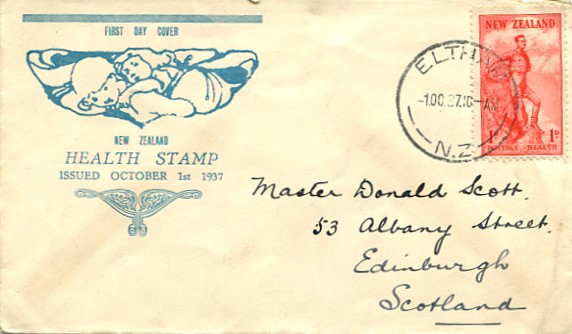 FIRST DAY COVER
NEW ZEALAND
HEALTH STAMP
ISSUED OCTOBER 1st 1937
ELTHAM
-1.OC.37.10-AM
N.Z.
NEW ZEALAND
1D 1D
POSTAGE - HEALTH
Master Donald Scott.
53 Albany Street.
Edinburgh
Scotland